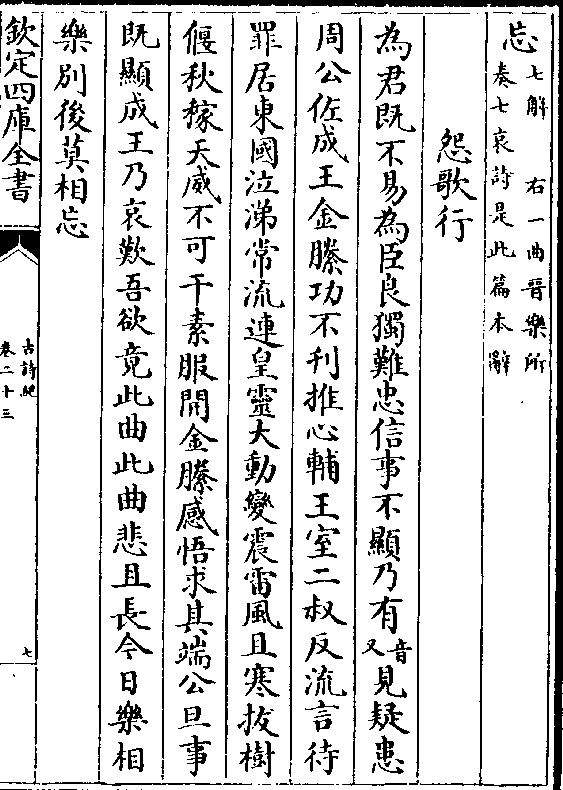 忘七解　右一曲晉樂所
奏七哀詩是此篇本辭
怨歌行
為君既不易為臣良獨難忠信事不顯乃有音又見疑患
周公佐成王金縢功不刊推心輔王室二叔反流言待
罪居東國泣涕常流連皇靈大動變震雷風且寒拔樹
偃秋稼天威不可干素服開金縢感悟求其端公旦事
既顯成王乃哀歎吾欲竟此曲此曲悲且長今日樂相
樂別後莫相忘
欽定四庫全書
古詩紀
卷二十三
七